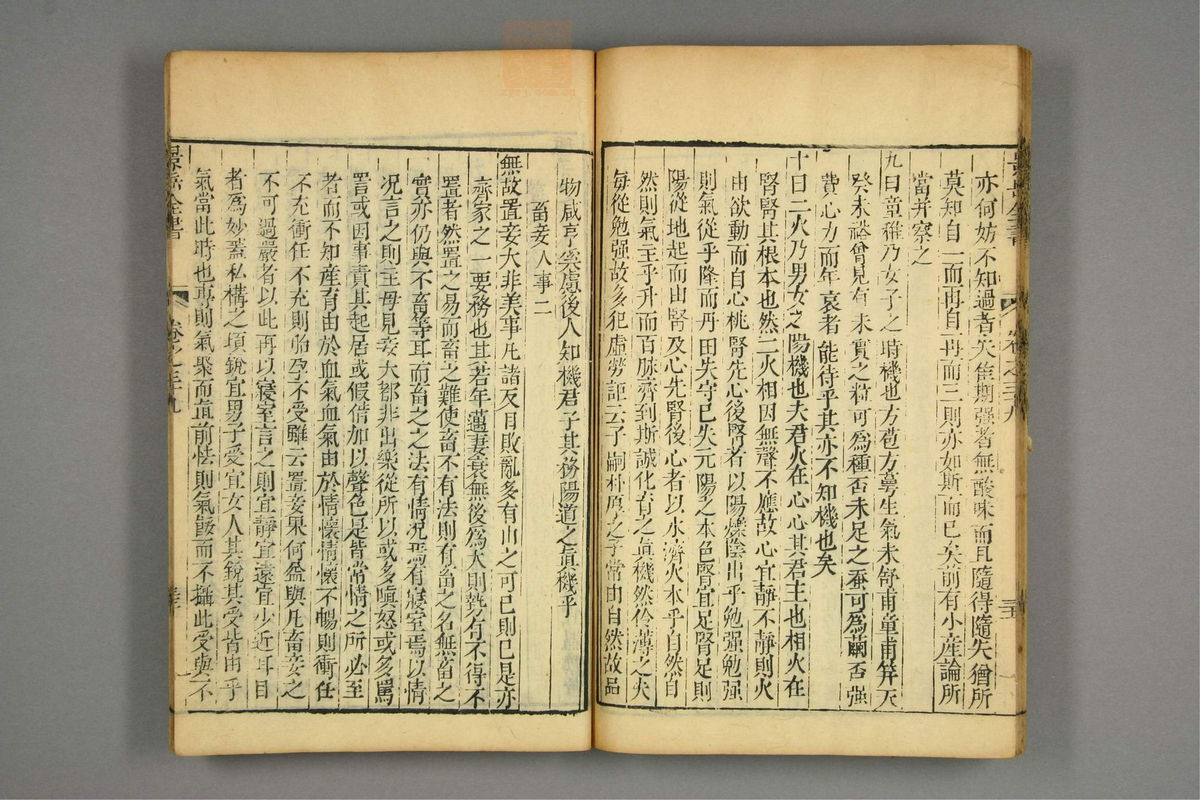 亦何妨不知過者失佳期強者無酸味而且隨得隨失猶所
莫知自一而再自再而三則亦如斯而已矣前有小產論所
當并察之
九曰童稚乃女子之時機也方苞方萼生氣未舒甫童甫笄天
癸未裕曾見有未實之粒可為種否未足之蚕可為繭否強
費心力而年衰者能待乎其亦不知機也矣
十曰二火乃男女之陽機也夫君火在心心其君主也相火在
腎腎其根本也然二火相因無聲不應故心宜静不静則火
由欲動而自心挑腎先心後腎者以陽爍陰出乎勉强勉强
則氣從乎降而丹田失守已失元陽之本色腎宜足腎足則
陽從地起而由腎及心先腎後心者以水濟火本乎自然自
然則氣主乎升而百脉齊到斯誠化育之眞機然伶薄之夫
每從勉强故多犯虛勞証云子嗣朴厚之子常由自然故品
物咸亨奚慮後人知機君子其務陽道之眞機乎
畜妾人事二
無故置妾大非美事凡諸反目敗亂多有由之可已則已是亦
齊家之一要務也其若年邁妻衰無後為大則勢有不得不
置者然置之易而畜之難使畜不有法則有畜之名無畜之
實亦仍與不畜等耳而畜之之法有情况焉有寢室焉以情
况言之則主母見妾大都非出樂從所以或多嗔怒或多罵
詈或因事責其起居或假借加以聲色是皆常情之所必至
者而不知産育由於血氣血氣由於情懷情懷不暢則衝任
不充衝任不充則胎孕不受雖云置妾果何益與凡畜妾之
不可過嚴者以此再以寢室言之則宜靜宜遠宜少近耳目
者為妙蓋私構之頃銳宜男子受宜女人其銳其受皆由乎
氣當此時也專則氣聚而直前怯則氣餒而不攝此受與不
景岳全書
卷之三十九